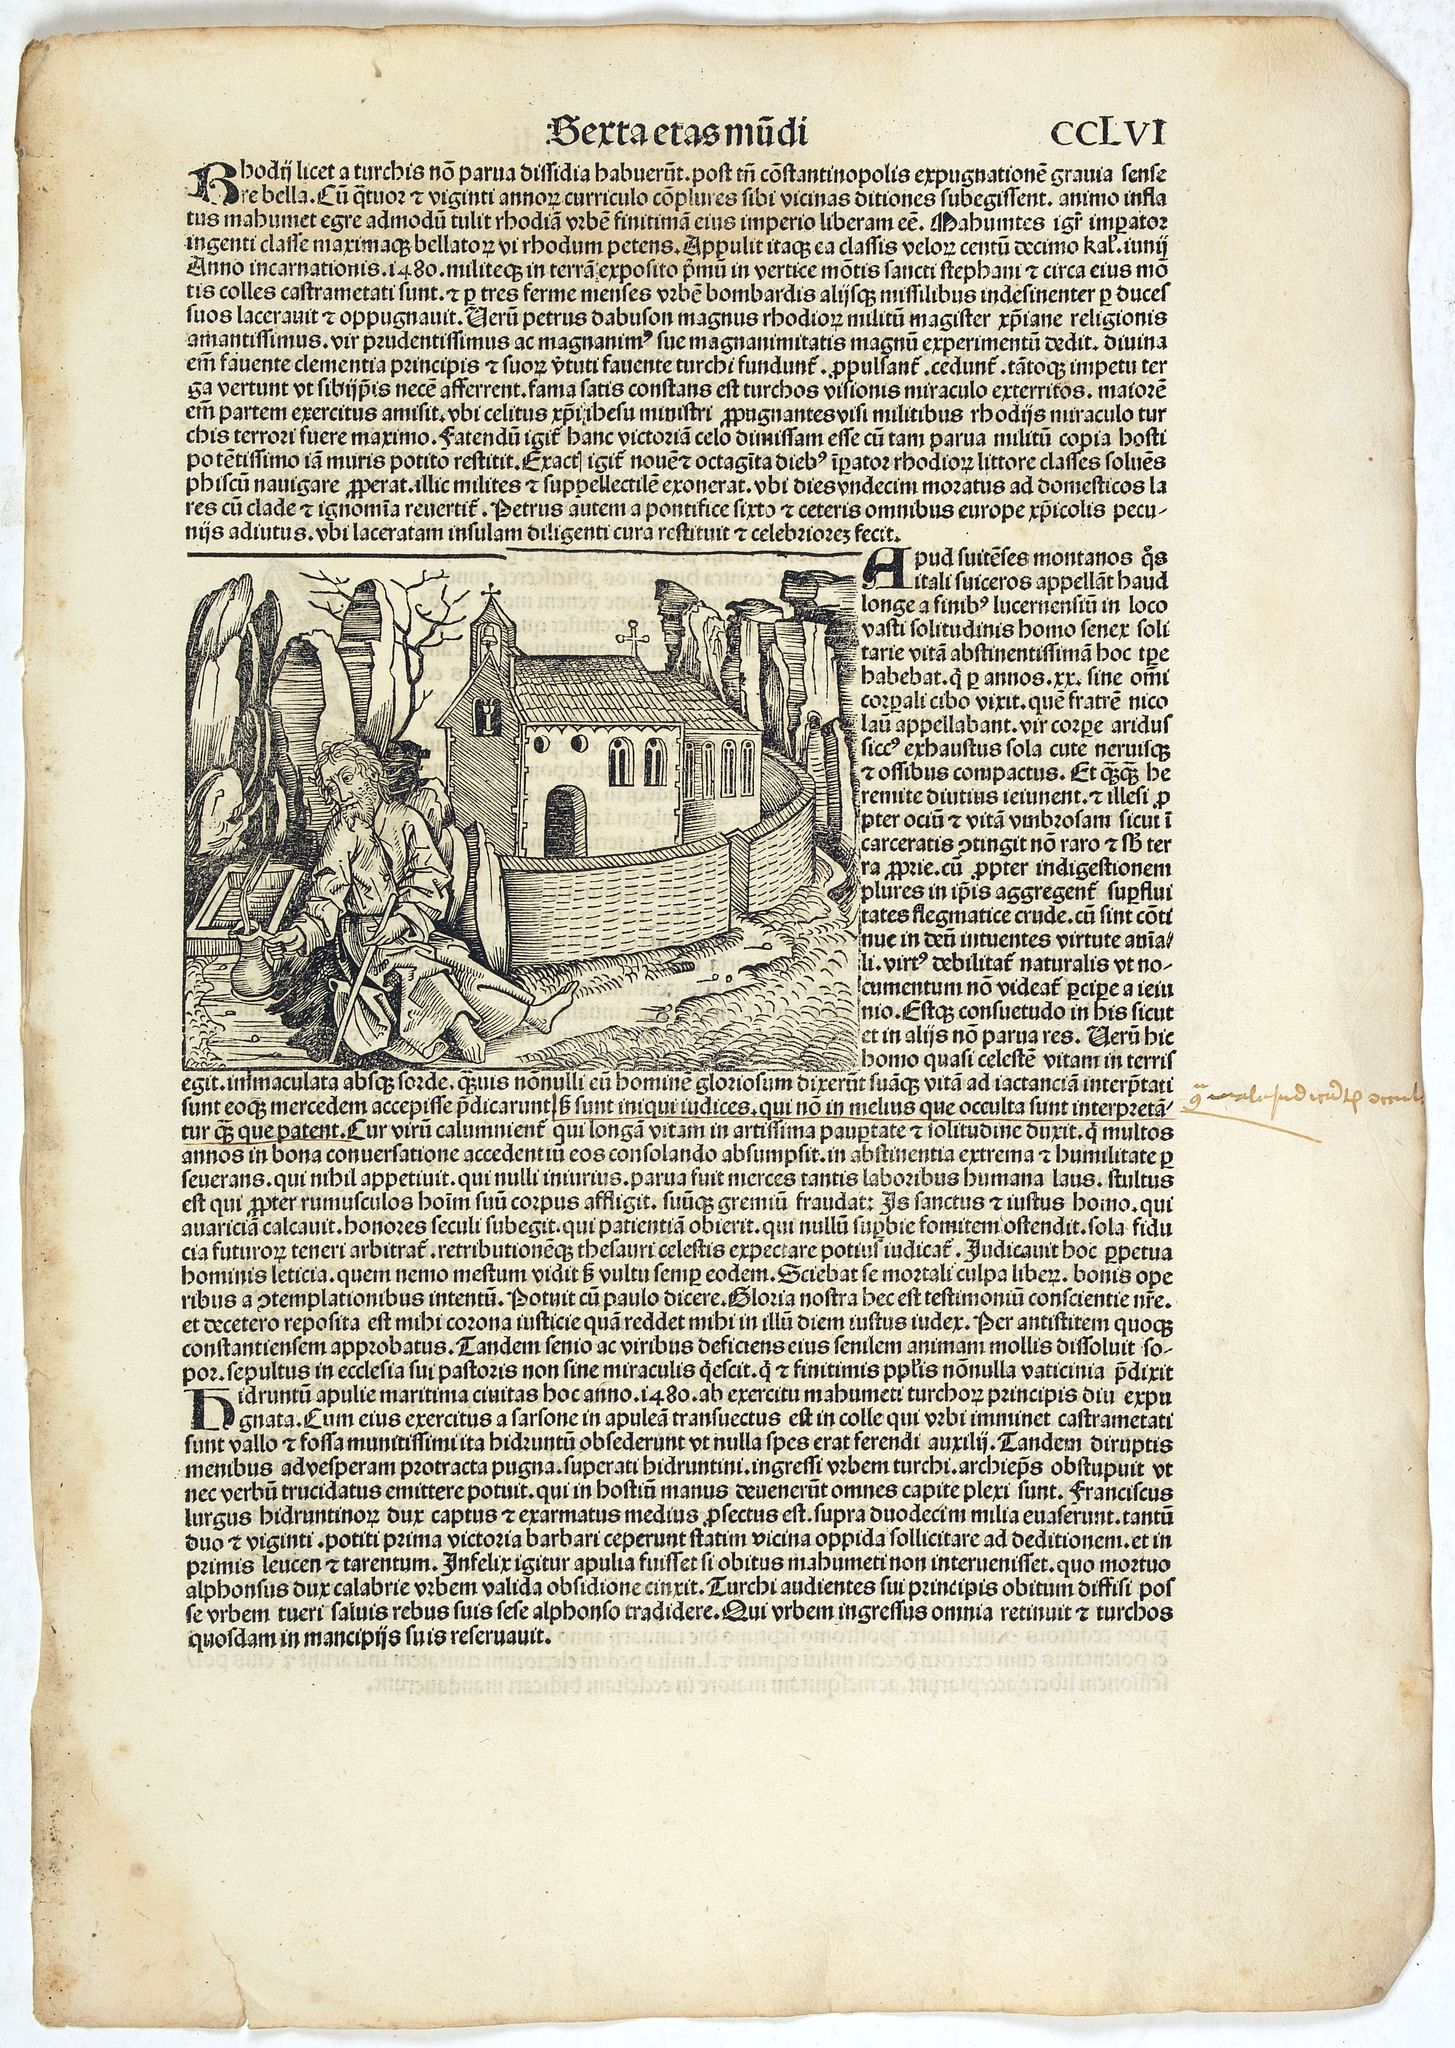 Sexta etas mūdi CCLVI
Rhodij licet a turchis nō parua dissidia habuerūt. post tn̄ cōstantinopolis expugnationē grauia sense
re bella. Cū q̄tuor ⁊ viginti annoꝝ curriculo cōplures sibi vicinas ditiones subegissent. animo infla
tus mahumet egre admodū tulit rhodiā vrbē finitimā eius imperio liberam eē. Mahumtes igr̄ imꝑator
ingenti classe maximaqꝫ bellatoꝝ vi rhodum petens. Appulit itaqꝫ ea classis veloꝝ centū decimo kal̄. iunij
Anno incarnationis .1480. militeqꝫ in terrā exposito p̄mū in vertice mōtis sancti stephani ⁊ circa eius mō
tis colles castrametati sunt. ⁊ ꝑ tres ferme menses vrbē bombardis alijsqꝫ missilibus indesinenter ꝑ duces
suos lacerauit ⁊ oppugnauit. Verū petrus dabuson magnus rhodioꝝ militū magister xp̄iane religionis
amantissimus. vir prudentissimus ac magnanimꝰ sue magnanimitatis magnū experimentū dedit. diuina
em̄ fauente clementia principis ⁊ suoꝝ v̄tuti fauente turchi fundunt̄. ꝓpulsant̄. cedunt̄. tātoqꝫ impetu ter
ga vertunt vt sibijp̄is necē afferrent. fama satis constans est turchos visionis miraculo exterritos. maiorē
em̄ partem exercitus amisit. vbi celitus xp̄i ihesu ministri ꝓpugnantes visi militibus rhodijs miraculo tur
chis terrori fuere maximo. Fatendū igit̄ hanc victoriā celo dimissam esse cū tam parua militū copia hosti
potētissimo iā muris potito restitit. Exact̄ igit̄ nouē ⁊ octagīta diebꝰ īꝑator rhodioꝝ littore classes soluēs
phiscū nauigare ꝓperat. illic milites ⁊ suppellectilē exonerat. vbi dies vndecim moratus ad domesticos la
res cū clade ⁊ ignomīa reuertit̄. Petrus autem a pontifice sixto ⁊ ceteris omnibus europe xp̄icolis pecu-
nijs adiutus. vbi laceratam insulam diligenti cura restituit ⁊ celebriorez fecit.
Apud suitēses montanos q̄s
itali suiceros appellāt haud
longe a finibꝰ lucernensiū in loco
vasti solitudinis homo senex soli
tarie vitā abstinentissimā hoc tꝑe
habebat. q̄ ꝑ annos .xx. sine omī
corꝑali cibo vixit. quē fratrē nico
laū appellabant. vir corꝑe aridus
siccꝰ exhaustus sola cute neruisqꝫ
⁊ ossibus compactus. Et qꝙ̄qꝫ̄ he
remite diutius ieiunent. ⁊ illesi ꝓ
pter ociū ⁊ vitā vmbrosam sicut ī
carceratis ꝯtingit nō raro ⁊ sb̄ ter
ra ꝓprie. cū ꝓpter indigestionem
plures in ip̄is aggregent̄ suꝑflui
tates flegmatice crude. cū sint cōti
nue in deū intuentes virtute anīa/
li. virtꝰ debilitat̄ naturalis vt no-
cumentum nō videat̄ ꝑcipe a ieiu
nio. Estqꝫ consuetudo in his sicut
et in alijs nō parua res. Verū hic
homo quasi celestē vitam in terris
egit. inmaculata absqꝫ sorde. qꝫuis nōnulli eū hominē gloriosum dixerūt suāqꝫ vitā ad iactanciā interp̄tati
sunt eoqꝫ mercedem accepisse p̄dicarunt sꝫ sunt iniqui iudices. qui nō in melius que occulta sunt interpretā-
tur qꝫ̄ que patent. Cur virū calumnient̄ qui longā vitam in artissima pauꝑtate ⁊ solitudine duxit. q̄ multos
annos in bona conuersatione accedentiū eos consolando absumpsit. in abstinentia extrema ⁊ humilitate ꝑ
seuerans. qui nihil appetiuit. qui nulli iniurius. parua fuit merces tantis laboribus humana laus. stultus
est qui ꝓpter rumusculos hoīm suū corpus affligit. suūqꝫ gremiū fraudat: Is sanctus ⁊ iustus homo. qui
auariciā calcauit. honores seculi subegit. qui patientiā obierit. qui nullū suꝑbie fomitem ostendit. sola fidu
cia futuroꝝ teneri arbitrat̄. retributionēqꝫ thesauri celestis expectare potius iudicat̄. Judicauit hoc ꝑpetua
hominis leticia. quem nemo mestum vidit sꝫ vultu semꝑ eodem. Sciebat se mortali culpa libeꝝ. bonis ope
ribus a ꝯtemplationibus intentū. Potuit cū paulo dicere. Gloria nostra hec est testimoniū conscientie nr̄e.
et decetero reposita est mihi corona iusticie quā reddet mihi in illū diem iustus iudex. Per antistitem quoqꝫ
constantiensem approbatus. Tandem senio ac viribus deficiens eius senilem animam mollis dissoluit so-
por. sepultus in ecclesia sui pastoris non sine miraculis q̄escit. q̄ ⁊ finitimis pplis̄ nōnulla vaticinia p̄dixit
Hidruntū apulie maritima ciuitas hoc anno .1480. ab exercitu mahumeti turchoꝝ principis diu expu
gnata. Cum eius exercitus a sarsone in apuleā transuectus est in colle qui vrbi imminet castrametati
sunt vallo ⁊ fossa munitissimi ita hidruntū obsederunt vt nulla spes erat ferendi auxilij. Tandem diruptis
menibus ad vesperam protracta pugna. superati hidruntini. ingressi vrbem turchi. archiep̄s obstupuit vt
nec verbū trucidatus emittere potuit. qui in hostiū manus deuenerūt omnes capite plexi sunt. Franciscus
lurgus hidruntinoꝝ dux captus ⁊ exarmatus medius ꝓsectus est. supra duodecim milia euaserunt. tantū
duo ⁊ viginti. potiti prima victoria barbari ceperunt statim vicina oppida sollicitare ad deditionem. et in
primis leucen ⁊ tarentum. Infelix igitur apulia fuisset si obitus mahumeti non interuenisset. quo mortuo
alphonsus dux calabrie vrbem valida obsidione cinxit. Turchi audientes sui principis obitum diffisi pos
se vrbem tueri saluis rebus suis sese alphonso tradidere. Qui vrbem ingressus omnia retinuit ⁊ turchos
quosdam in mancipijs suis reseruauit.